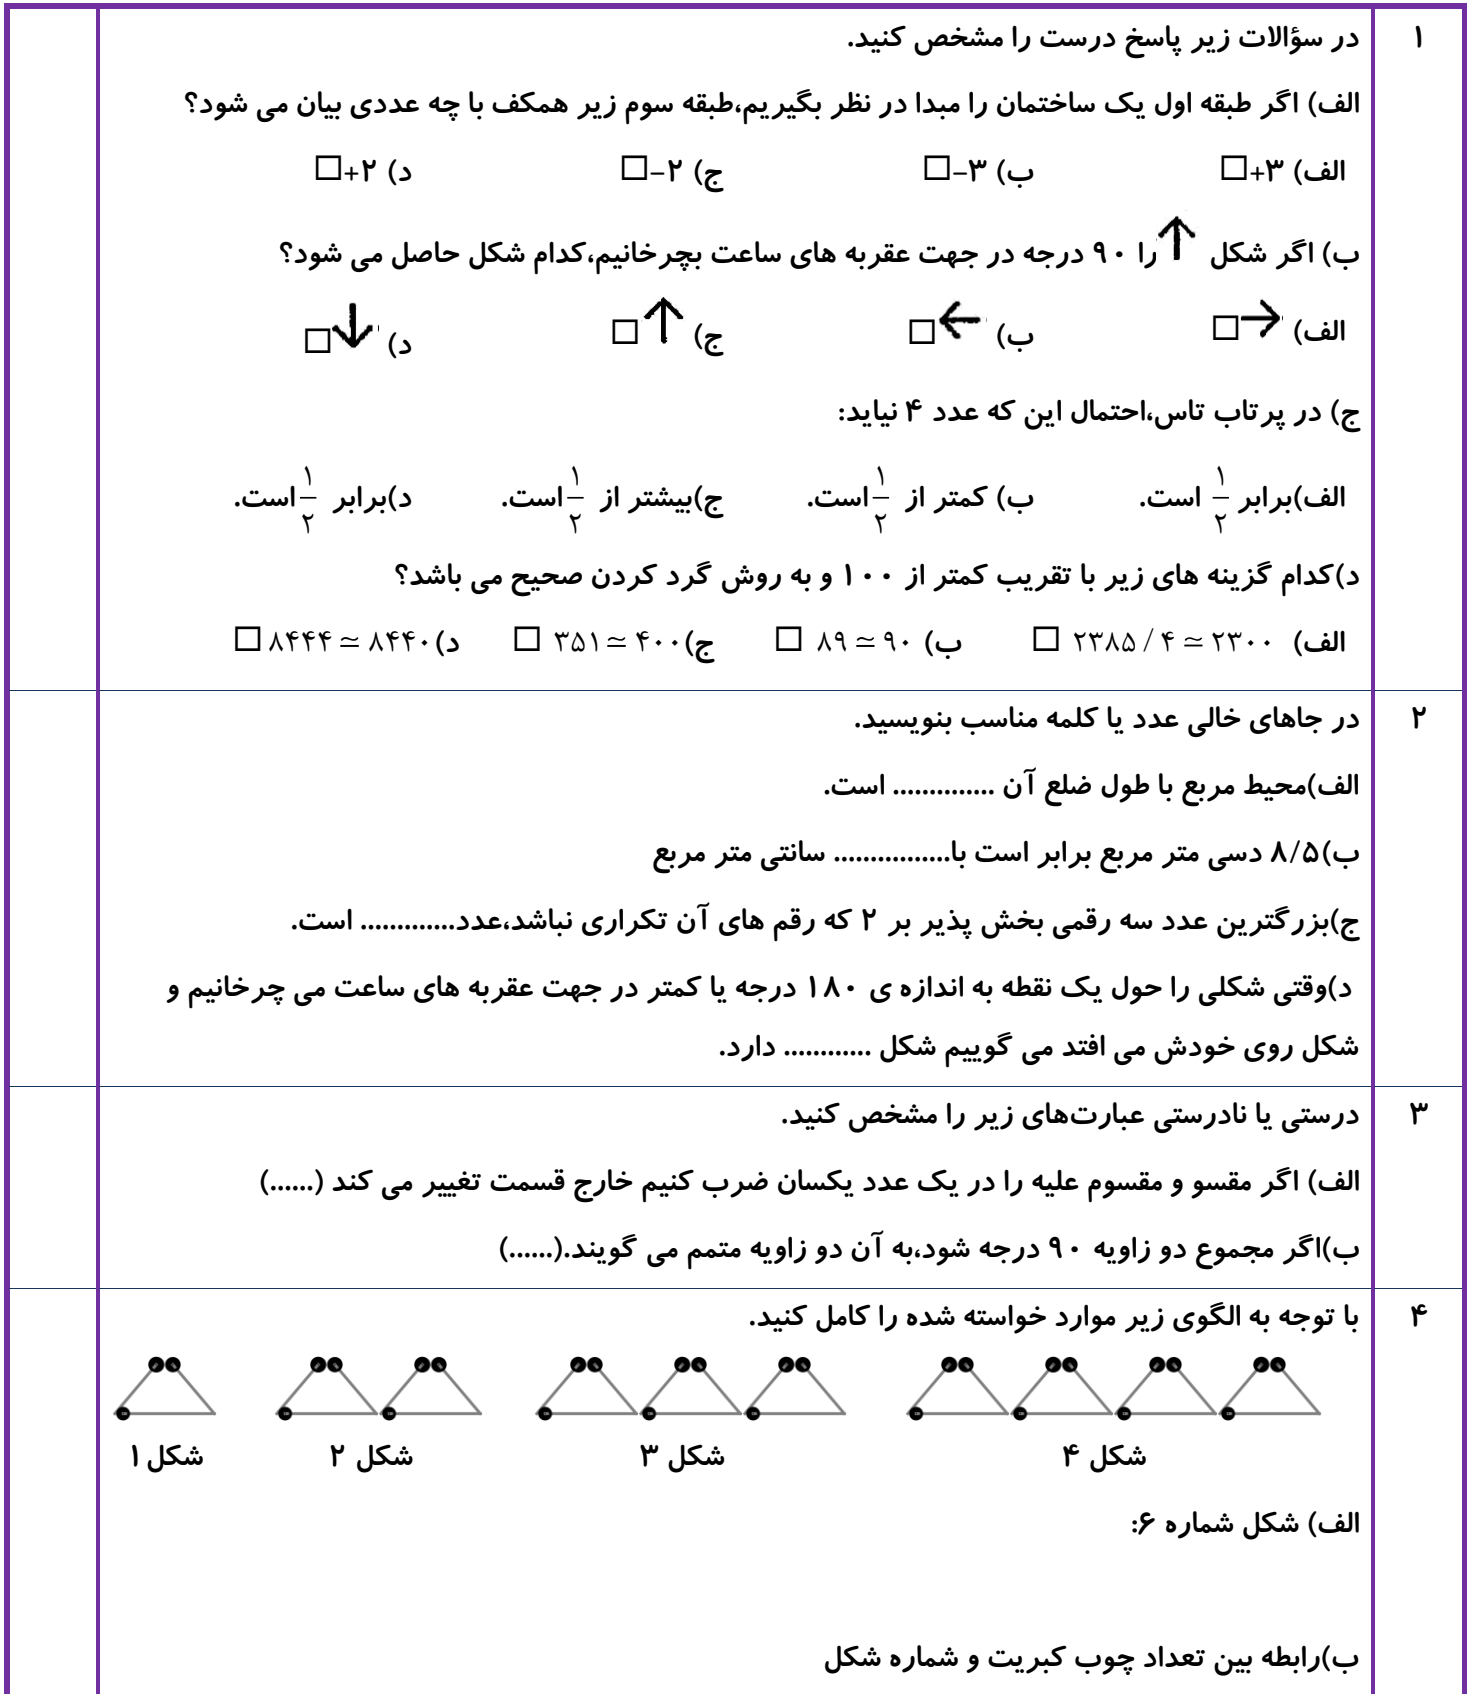 ۱
در سؤالات زیر پاسخ درست را مشخص کنید.
الف) اگر طبقه اول یک ساختمان را مبدا در نظر بگیریم،طبقه سوم زیر همکف با چه عددی بیان می شود؟
الف) ۳+□ ب) ۳−□ ج) ۲−□ د) ۲+□
ب) اگر شکل ↑ را ۹۰ درجه در جهت عقربه های ساعت بچرخانیم،کدام شکل حاصل می شود؟
الف) →□ ب) ←□ ج) ↑□ د) ↓□
ج) در پرتاب تاس،احتمال این که عدد ۴ نیاید:
الف)برابر ۱/۲ است. ب) کمتر از ۱/۲ است. ج)بیشتر از ۱/۲ است. د)برابر ۱/۲ است.
د)کدام گزینه های زیر با تقریب کمتر از ۱۰۰ و به روش گرد کردن صحیح می باشد؟
الف) ۲۳۸۵/۴ ≃ ۲۳۰۰ □ ب) ۸۹ ≃ ۹۰ □ ج)۳۵۱ ≃ ۴۰۰ □ د)۸۴۴۴ ≃ ۸۴۴۰ □
۲
در جاهای خالی عدد یا کلمه مناسب بنویسید.
الف)محیط مربع با طول ضلع آن .............. است.
ب)۸/۵ دسی متر مربع برابر است با................ سانتی متر مربع
ج)بزرگترین عدد سه رقمی بخش پذیر بر ۲ که رقم های آن تکراری نباشد،عدد............. است.
د)وقتی شکلی را حول یک نقطه به اندازه ی ۱۸۰ درجه یا کمتر در جهت عقربه های ساعت می چرخانیم و
شکل روی خودش می افتد می گوییم شکل ............ دارد.
۳
درستی یا نادرستی عبارت‌های زیر را مشخص کنید.
الف) اگر مقسو و مقسوم علیه را در یک عدد یکسان ضرب کنیم خارج قسمت تغییر می کند (......)
ب)اگر مجموع دو زاویه ۹۰ درجه شود،به آن دو زاویه متمم می گویند.(......)
۴
با توجه به الگوی زیر موارد خواسته شده را کامل کنید.
شکل ۱ شکل ۲ شکل ۳ شکل ۴
الف) شکل شماره ۶:
ب)رابطه بین تعداد چوب کبریت و شماره شکل